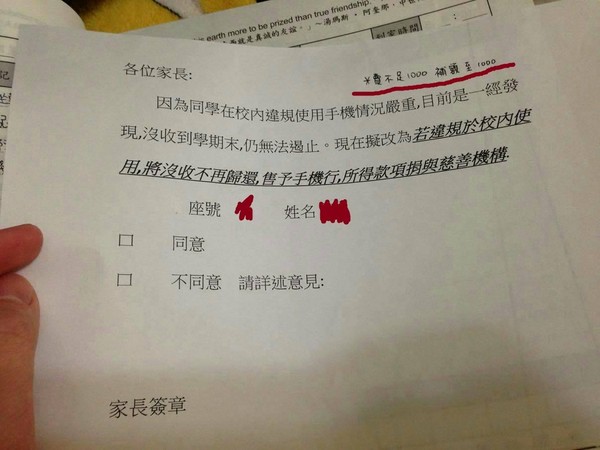 is earth more to be prized than true friendship.
就是真誠的友誼。」~湯瑪斯‧阿奎那,中世
到家時間
各位家長:
*賣不足1000 補繳至1000
因為同學在校內違規使用手機情況嚴重,目前是一經發
現,沒收到學期末,仍無法遏止。現在擬改為若違規於校內使
用,將沒收不再歸還,售予手機行,所得款項捐與慈善機構.
座號 姓名
□ 同意
□ 不同意 請詳述意見:
家長簽章